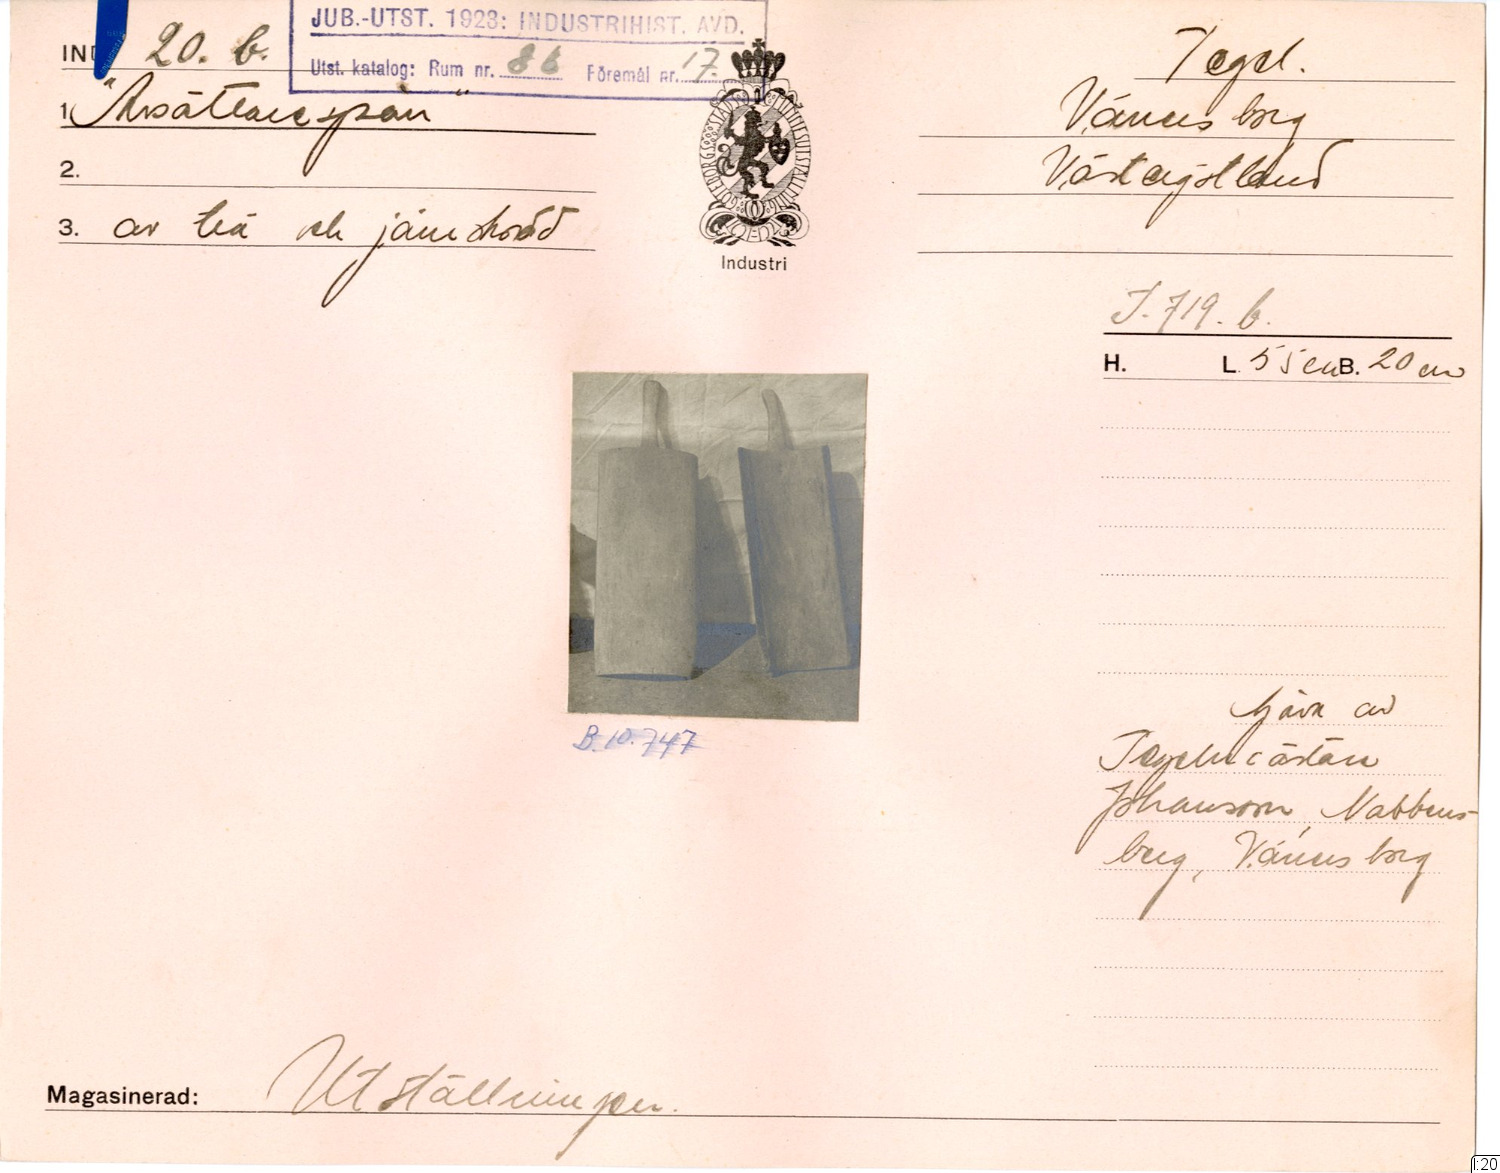 JUB.-UTST. 1923: INDUSTRIHIST. AVD.
Utst. katalog: Rum nr. 86 Föremål nr. 17.
IND 20. b.
1. "Avsättarespan"
2.
3. av trä och järnskodd
Industri
Tegel.
Vänersborg
Västergötland
I. 719. b.
H. L. 55 cm B. 20 cm
B. 10.747
Gåva av
Tegelmästare
Johansson, Nabbens-
berg, Vänersborg
Magasinerad: Utställningen.
1:20